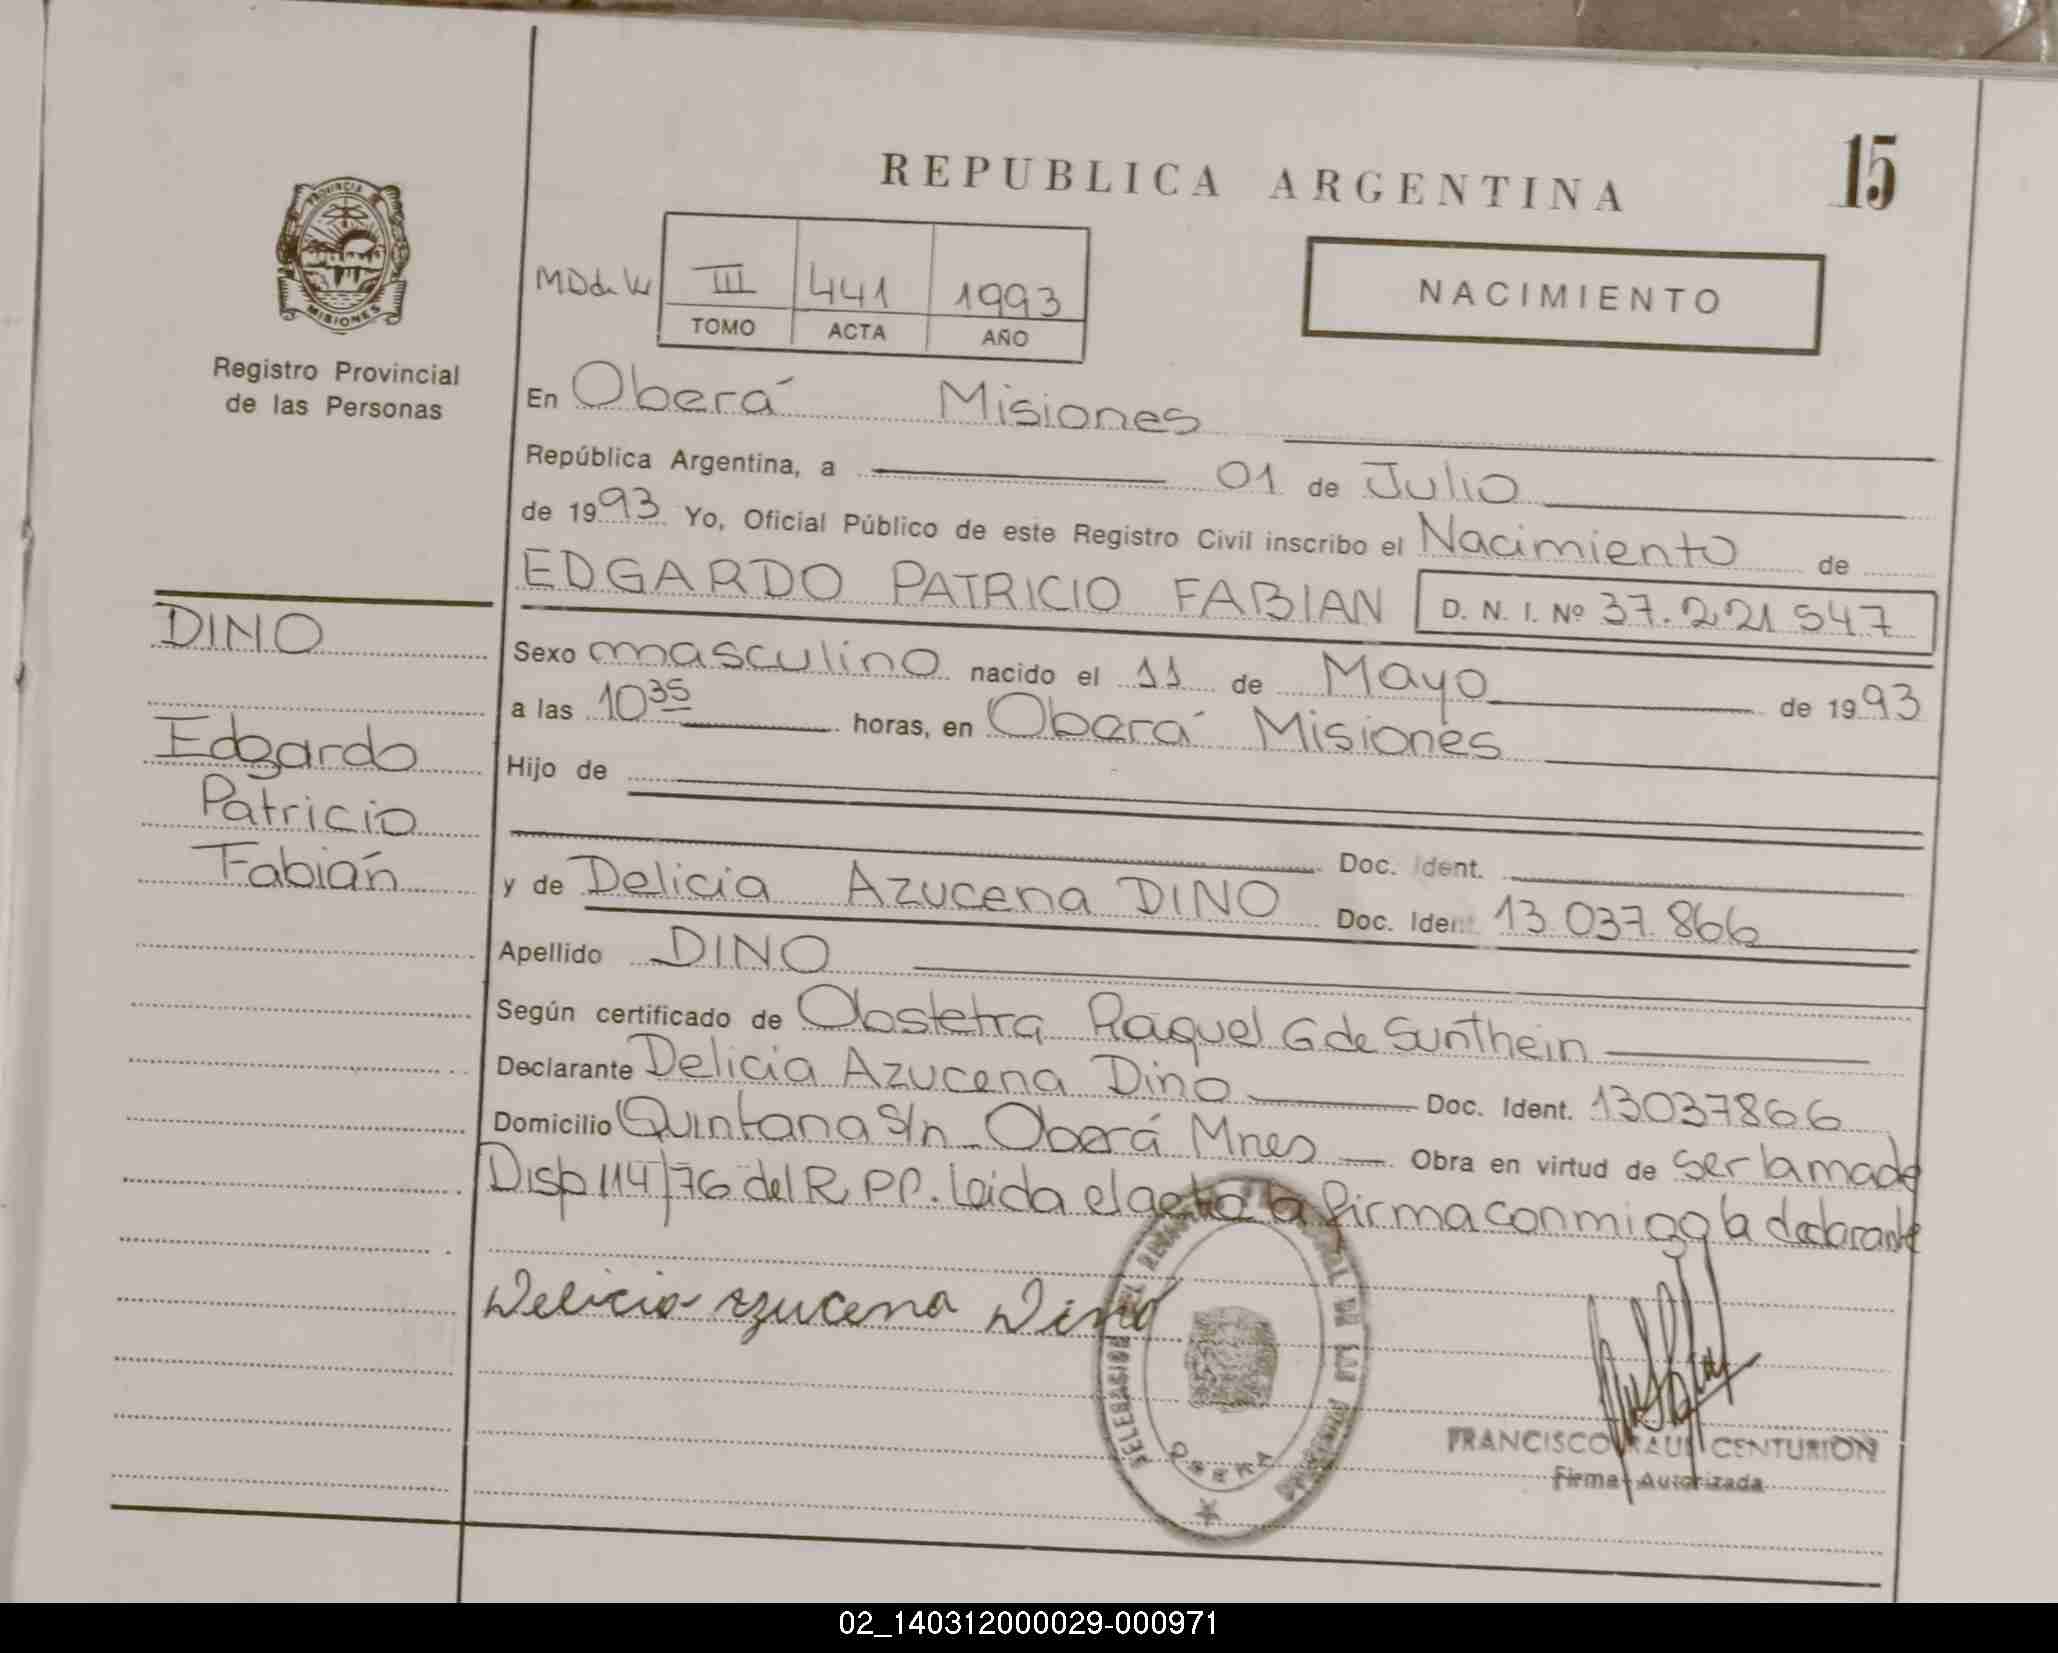 REPUBLICA ARGENTINA
15
PROVINCIA
MISIONES
Registro Provincial
de las Personas
III 441 1993
TOMO ACTA AÑO
NACIMIENTO
En Oberá Misiones
República Argentina, a 01 de Julio
de 1993 Yo, Oficial Público de este Registro Civil inscribo el Nacimiento de
EDGARDO PATRICIO FABIAN D. N. I. Nº 37.221 547
DINO
Edgardo
Patricio
Fabián
Sexo masculino nacido el 11 de Mayo de 1993
a las 10 35 horas, en Oberá Misiones
Hijo de
Doc. Ident.
y de Delicia Azucena DINO Doc. Ident 13 037.866
Apellido DINO
Según certificado de Obstetra Raquel G de Sunthein
Declarante Delicia Azucena Dino Doc. Ident. 13037866
Domicilio Quintana s/n Oberá Mnes Obra en virtud de ser la madre
Disp 114/76 del R.P.P. Leida el acta la firma conmigo la declarante
Delicia Azucena Dino
OBERA
FRANCISCO RAUL CENTURION
Firma Autorizada
02_140312000029-000971